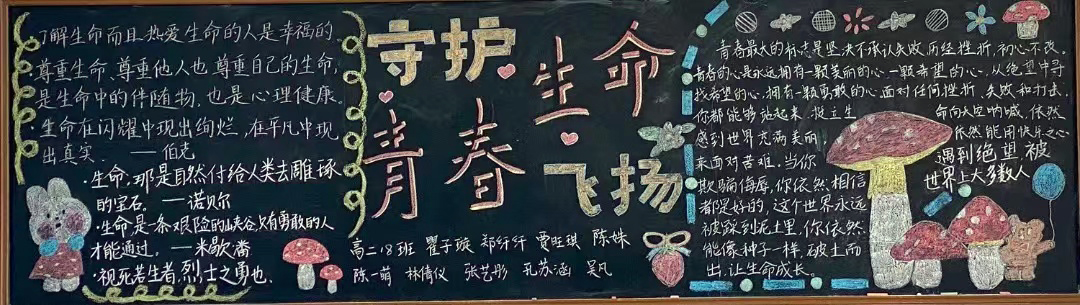 了解生命而且热爱生命的人是幸福的.
·尊重生命、尊重他人也尊重自己的生命,
是生命中的伴随物,也是心理健康.
·生命在闪耀中现出绚烂,在平凡中现
出真实. ——伯克
·生命,那是自然付给人类去雕琢
的宝石. ——诺贝尔
·生命是一条艰险的峡谷,只有勇敢的人
才能通过. ——米歇潘
·视死若生者,烈士之勇也.
守护生命
青春飞扬
高二18班 瞿子璇 郑行行 贾旺琪 陈姝
陈一萌 林倩仪 张艺彤 孔苏涵 吴凡
青春最大的标志是坚决不承认失败,历经挫折,初心不改.
青春的心是永远拥有一颗美丽的心,一颗希望的心,从绝望中寻
找希望的心,拥有一颗勇敢的心,面对任何挫折,失败和打击,
你都能够站起来,挺立生命向天空呐喊,依然
感到世界充满美丽,依然能用快乐之心
来面对苦难.当你遇到绝望,被
欺骗侮辱,你依然相信世界上大多数人
都是好的,这个世界永远
被踩到泥土里,你依然
能像种子一样,破土而
出,让生命成长.